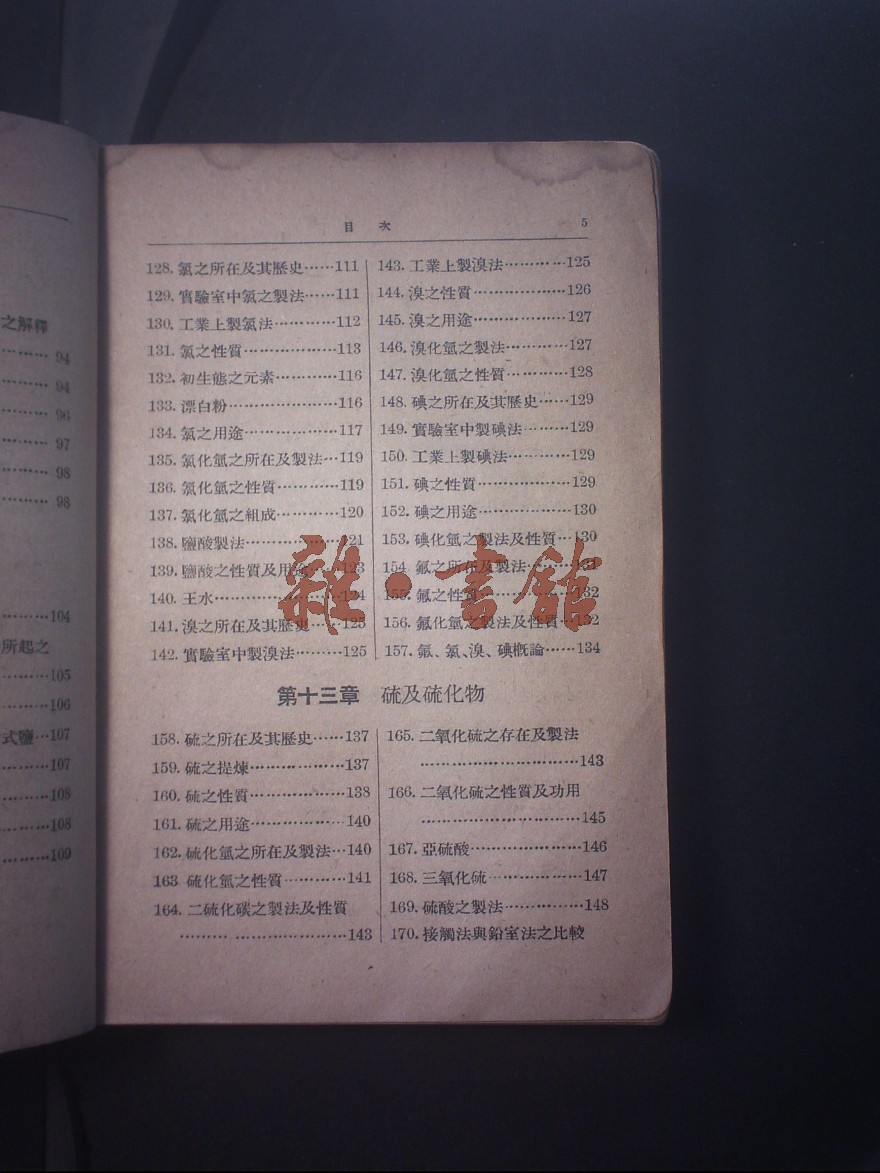 之解釋
94
94
96
97
98
98
104
所起之
105
106
式鹽…107
107
108
108
109
目 次 5
128. 氯之所在及其歷史……111
129. 實驗室中氯之製法……111
130. 工業上製氯法…………112
131. 氯之性質………………113
132. 初生態之元素…………116
133. 漂白粉…………………116
134. 氯之用途………………117
135. 氯化氫之所在及製法…119
136. 氯化氫之性質…………119
137. 氯化氫之組成…………120
138. 鹽酸製法………………121
139. 鹽酸之性質及用途……123
140. 王水……………………124
141. 溴之所在及其歷史……125
142. 實驗室中製溴法………125
143. 工業上製溴法…………125
144. 溴之性質………………126
145. 溴之用途………………127
146. 溴化氫之製法…………127
147. 溴化氫之性質…………128
148. 碘之所在及其歷史……129
149. 實驗室中製碘法………129
150. 工業上製碘法…………129
151. 碘之性質………………129
152. 碘之用途………………130
153. 碘化氫之製法及性質…130
154 氟之所在及製法………131
155. 氟之性質………………132
156. 氟化氫之製法及性質…132
157. 氟、氯、溴、碘概論……134
雜·書舘
第十三章 硫及硫化物
158. 硫之所在及其歷史……137
159. 硫之提煉………………137
160. 硫之性質………………138
161. 硫之用途………………140
162. 硫化氫之所在及製法…140
163 硫化氫之性質…………141
164. 二硫化碳之製法及性質
……………………………143
165. 二氧化硫之存在及製法
……………………………143
166. 二氧化硫之性質及功用
……………………………145
167. 亞硫酸…………………146
168. 三氧化硫………………147
169. 硫酸之製法……………148
170. 接觸法與鉛室法之比較